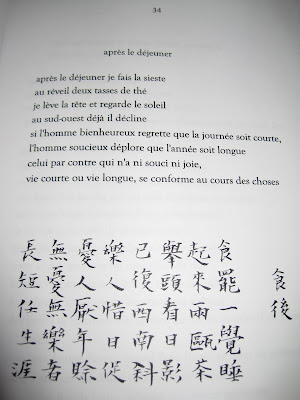 34
après le déjeuner
après le déjeuner je fais la sieste
au réveil deux tasses de thé
je lève la tête et regarde le soleil
au sud-ouest déjà il décline
si l'homme bienheureux regrette que la journée soit courte,
l'homme soucieux déplore que l'année soit longue
celui par contre qui n'a ni souci ni joie,
vie courte ou vie longue, se conforme au cours des choses
食後
食罷一覺睡
起來兩甌茶
舉頭看日影
已復西南斜
樂人惜日促
憂人厭年賒
無憂無樂者
長短任生涯